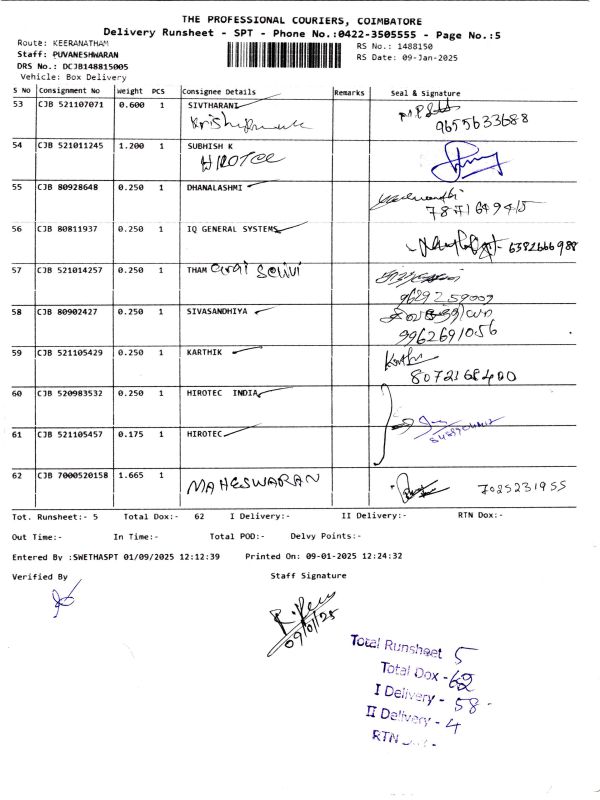 THE PROFESSIONAL COURIERS, COIMBATORE
Delivery Runsheet - SPT - Phone No.:0422-3505555 - Page No.:5
Route: KEERANATHAM
RS No.: 1488150
Staff: PUVANESHWARAN
RS Date: 09-Jan-2025
DRS No.: DCJB148815005
Vehicle: Box Delivery
S No Consignment No Weight PCS Consignee Details Remarks Seal & Signature
53 CJB 521107071 0.600 1 SIVTHARANI
9655633688
54 CJB 521011245 1.200 1 SUBHISH K
HIROTEC
55 CJB 80928648 0.250 1 DHANALASHMI
7871649415
56 CJB 80811937 0.250 1 IQ GENERAL SYSTEMS
6382666988
57 CJB 521014257 0.250 1 THAM arai selivi
9629259009
58 CJB 80902427 0.250 1 SIVASANDHIYA
9962691056
59 CJB 521105429 0.250 1 KARTHIK
8072168400
60 CJB 520983532 0.250 1 HIROTEC INDIA
61 CJB 521105457 0.175 1 HIROTEC
62 CJB 7000520158 1.665 1 MAHESWARAN
7025231955
Tot. Runsheet:- 5 Total Dox:- 62 I Delivery:- II Delivery:- RTN Dox:-
Out Time:- In Time:- Total POD:- Delvy Points:-
Entered By :SWETHASPT 01/09/2025 12:12:39 Printed On: 09-01-2025 12:24:32
Verified By Staff Signature
09/01/25
Total Runsheet 5
Total Dox - 62
I Delivery - 58
II Delivery - 4
RTN